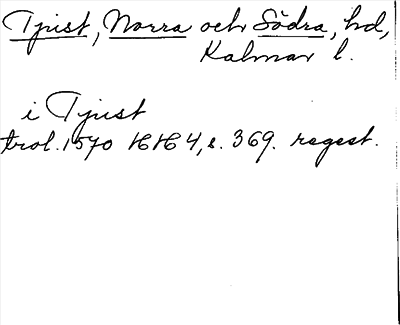 Tjust, Norra och Södra, hd,
Kalmar l.
i Tjust
trol. 1570 HH 4, s. 369. regest.